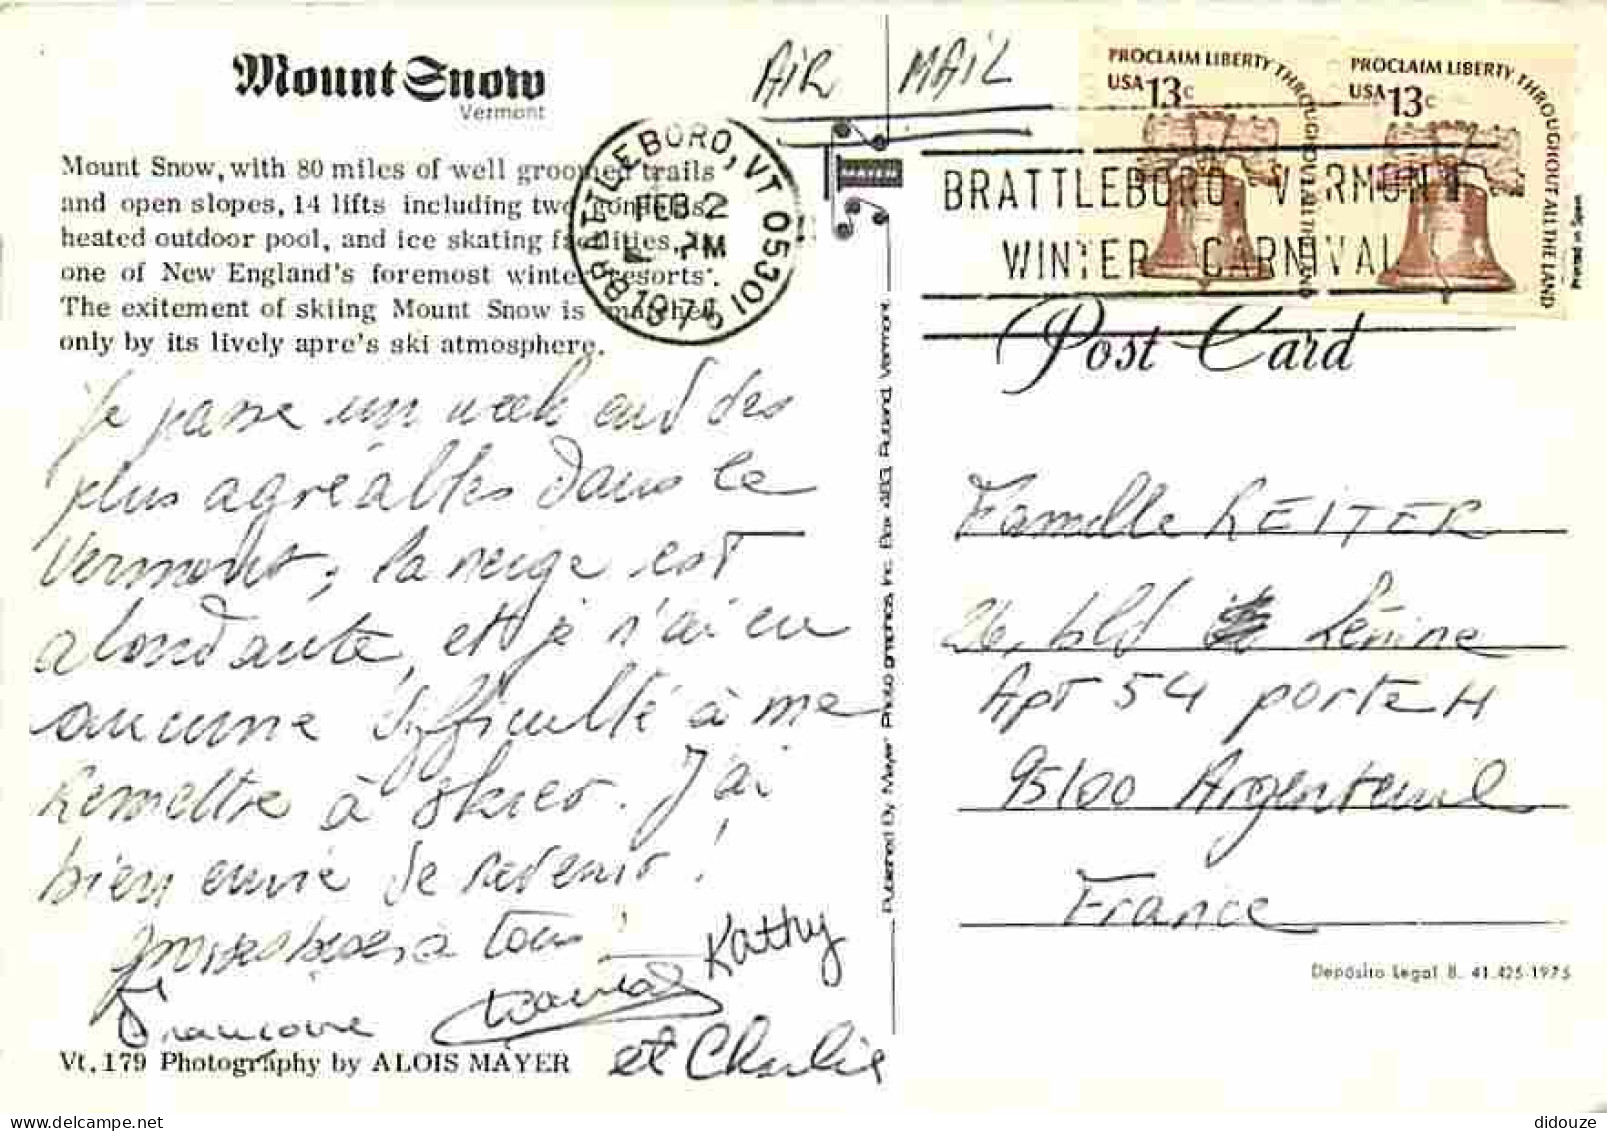 Mount Snow
Vermont
Mount Snow, with 80 miles of well groomed trails
and open slopes, 14 lifts including two gondolas,
heated outdoor pool, and ice skating facilities, is
one of New England's foremost winter resorts.
The exitement of skiing Mount Snow is matched
only by its lively apre's ski atmosphere.
Je passe un week end des
plus agréables dans le
Vermont, la neige est
abondante, et je n'ai eu
aucune difficulté à me
remettre à skier. J'ai
bien envie de revenir!
Grosses bises à tous
Kathy
Francoise
et Charlie
Vt. 179 Photography by ALOIS MAYER
Published By Mayer Photo graphics, Inc. Box 483, Rutland, Vermont
AIR MAIL
BRATTLEBORO, VT 05301
FEB 2
PM
1976
BRATTLEBORO, VERMONT
WINTER CARNIVAL
PROCLAIM LIBERTY THROUGHOUT ALL THE LAND
USA 13c
PROCLAIM LIBERTY THROUGHOUT ALL THE LAND
USA 13c
Printed in Spain
Post Card
Famille REITER
26, bld Lénine
Apt 54 porte H
95100 Argenteuil
France
Depósito Legal B. 41.425-1975
didouze